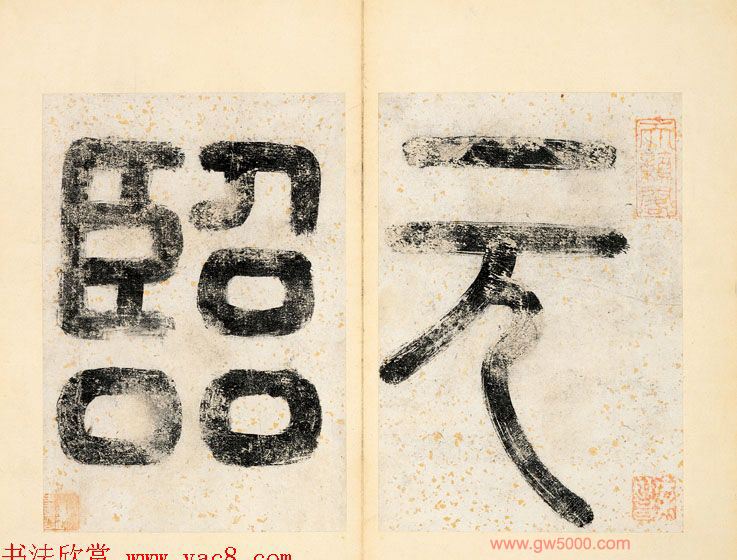 元
臨
天籟閣
书法欣赏 www.yac8.com
www.gw5000.com